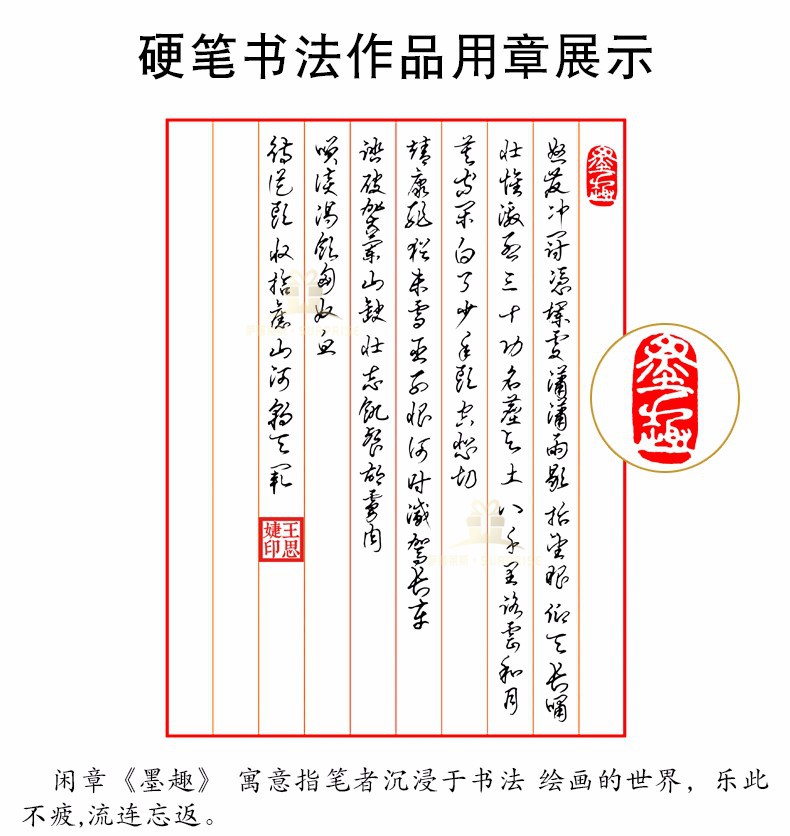 硬笔书法作品用章展示
墨趣
怒发冲冠憑欄處瀟瀟雨歇抬望眼仰天長嘯
壮懷激烈三十功名塵与土八千里路雲和月
莫等闲白了少年头空悲切
靖康耻猶未雪臣子恨何时滅駕長車
踏破賀蘭山缺壮志飢餐胡虜肉
笑谈渴飲匈奴血
待從头收拾舊山河朝天闕
王思婕印
墨趣
闲章《墨趣》 寓意指笔者沉浸于书法 绘画的世界，乐此
不疲,流连忘返。